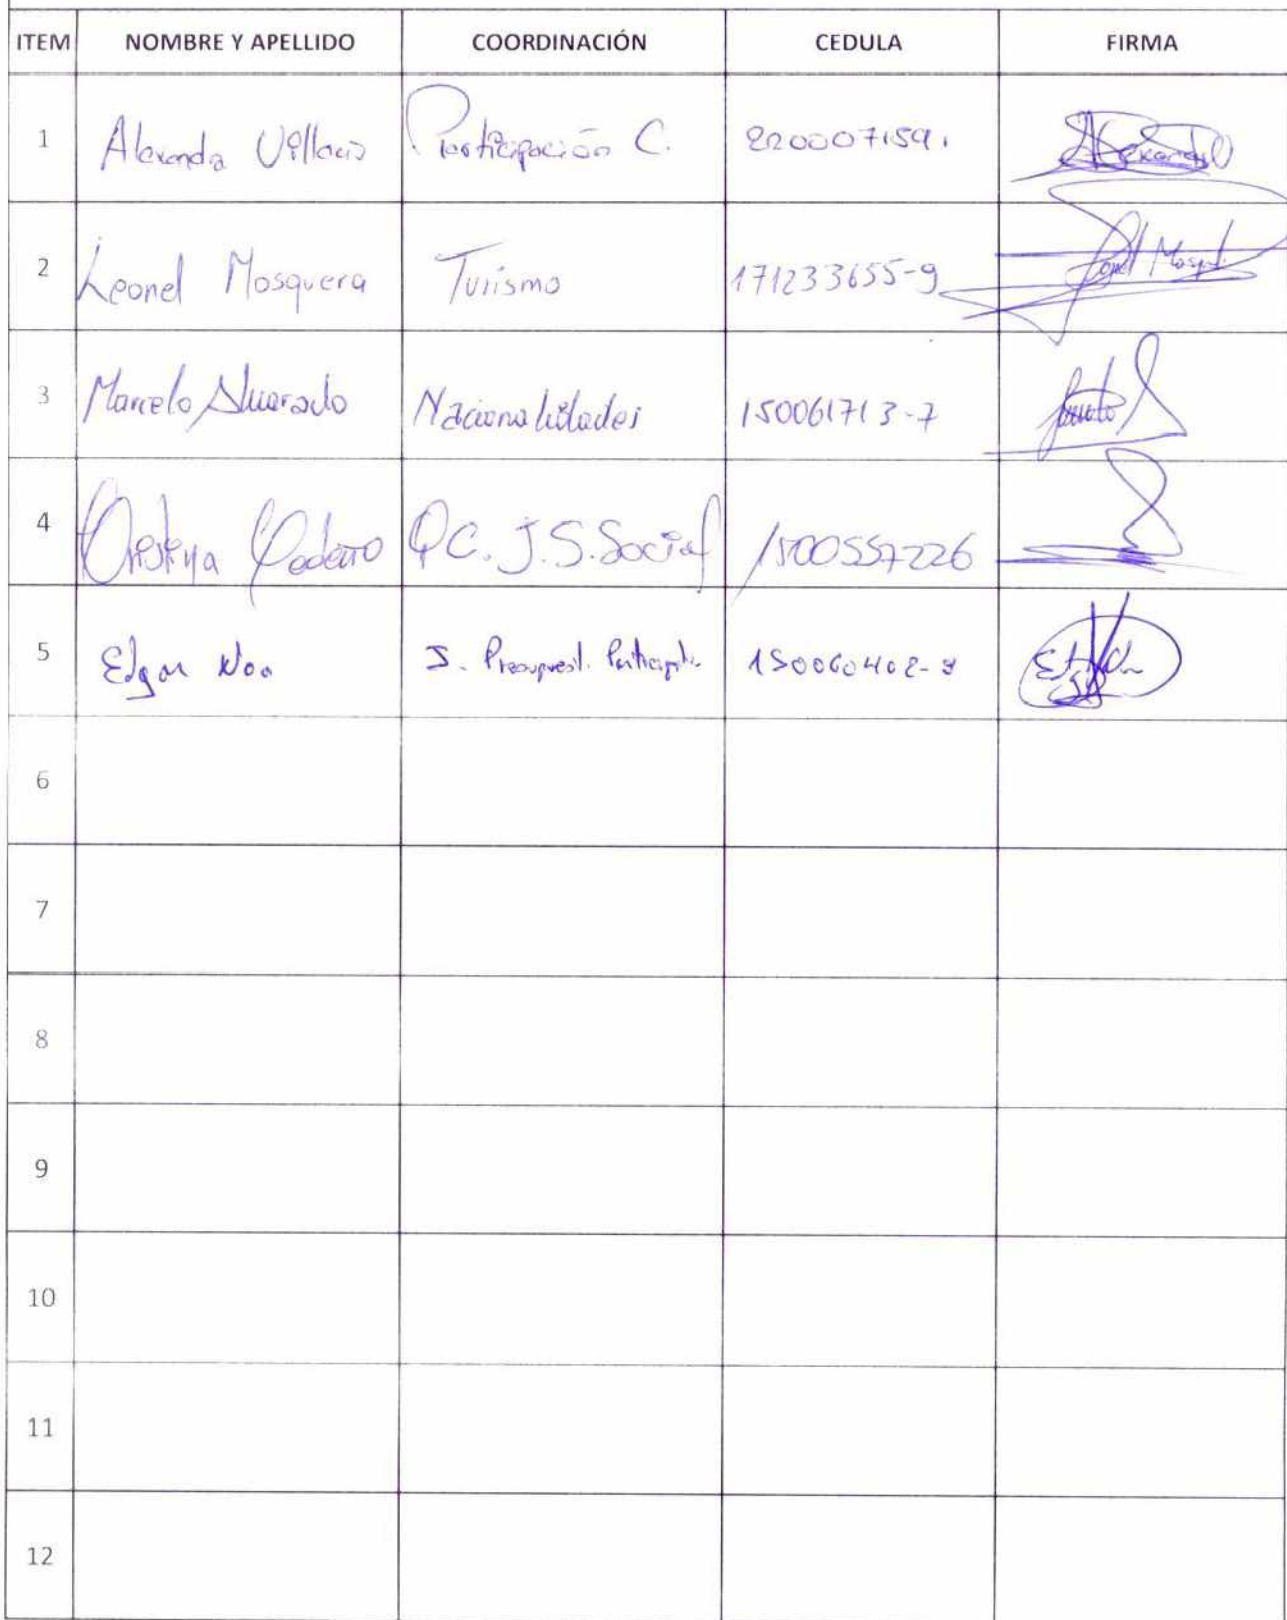 ITEM NOMBRE Y APELLIDO COORDINACIÓN CEDULA FIRMA
1 Alexandra Villacis Participación C. 220007159.
2 Leonel Mosquera Turismo 171233655-9
3 Marcelo Alvarado Nacionalidades 150061713-7
4 Cristina Cedeño PC. J. S. Social 1500557226
5 Edgar Noa J. Presupuest. Participti.
6
7
8
9
10
11
12